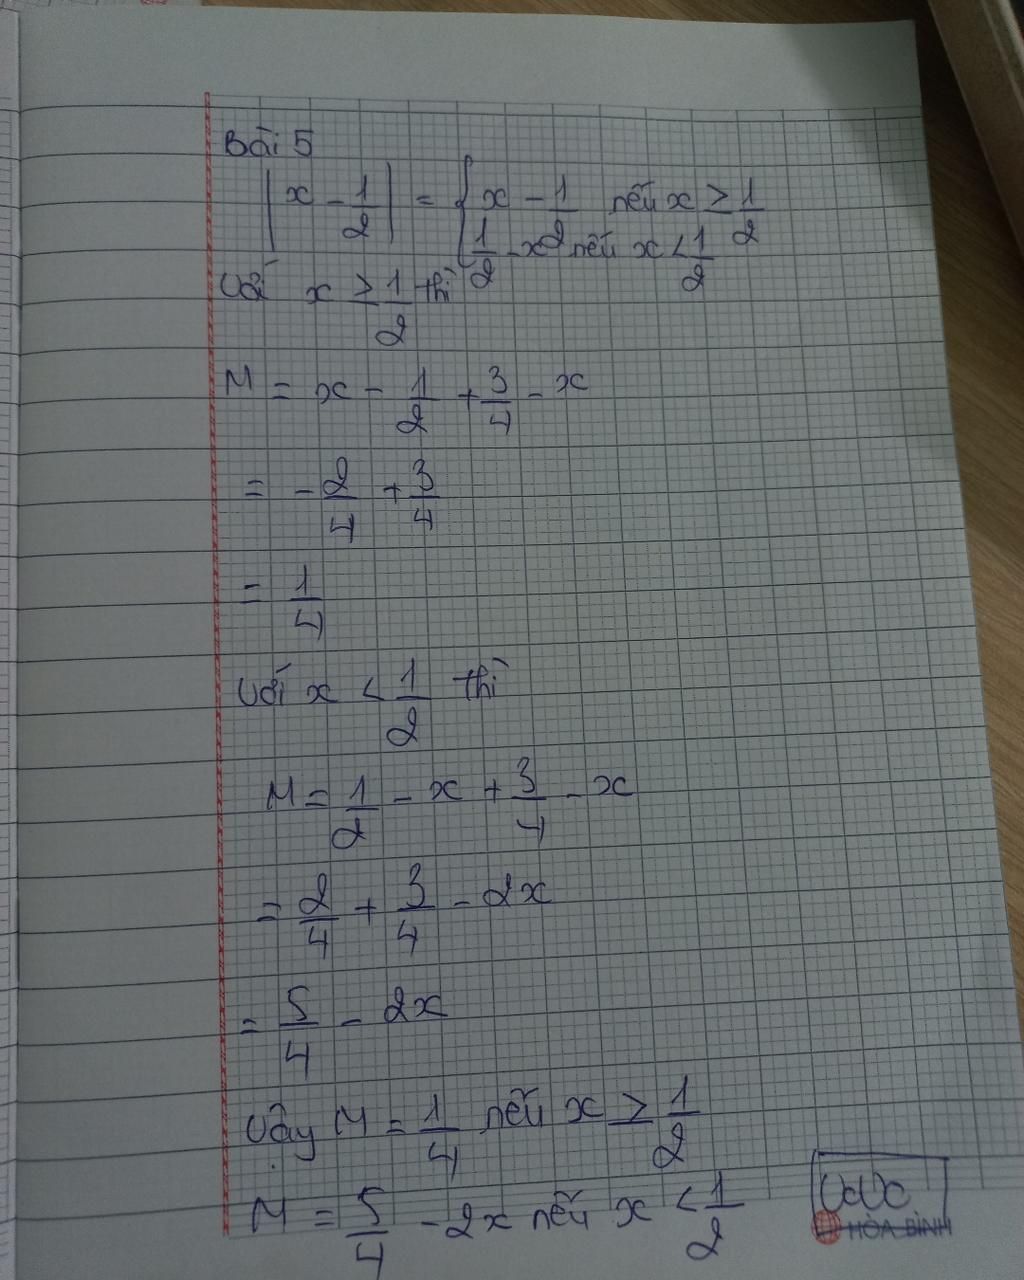 Bài 5
|x - 1/2| = { x - 1/2 nếu x ≥ 1/2
1/2 - x nếu x < 1/2
Với x ≥ 1/2 thì
M = x - 1/2 + 3/4 - x
= - 2/4 + 3/4
= 1/4
Với x < 1/2 thì
M = 1/2 - x + 3/4 - x
= 2/4 + 3/4 - 2x
= 5/4 - 2x
Vậy M = 1/4 nếu x ≥ 1/2
M = 5/4 - 2x nếu x < 1/2
HÒA BÌNH